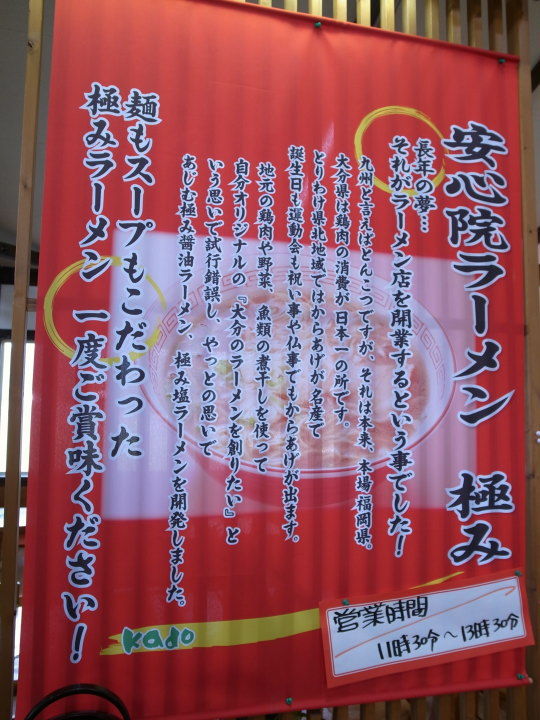 安心院ラーメン 極み
長年の夢…
それがラーメン店を開業するという事でした!
九州と言えばとんこつですが、それは本来、本場福岡県。
大分県は鶏肉の消費が日本一の所です。
とりわけ県北地域ではからあげが名産で
誕生日も運動会も祝い事や仏事でもからあげが出ます。
地元の鶏肉や野菜、魚類の煮干しを使って
自分オリジナルの『大分のラーメンを創りたい』と
いう思いで試行錯誤し、やっとの思いで
あじむ極み醤油ラーメン、極み塩ラーメンを開発しました。
麺もスープもこだわった
極みラーメン 一度ご賞味ください!
Kado
営業時間
11時30分〜13時30分